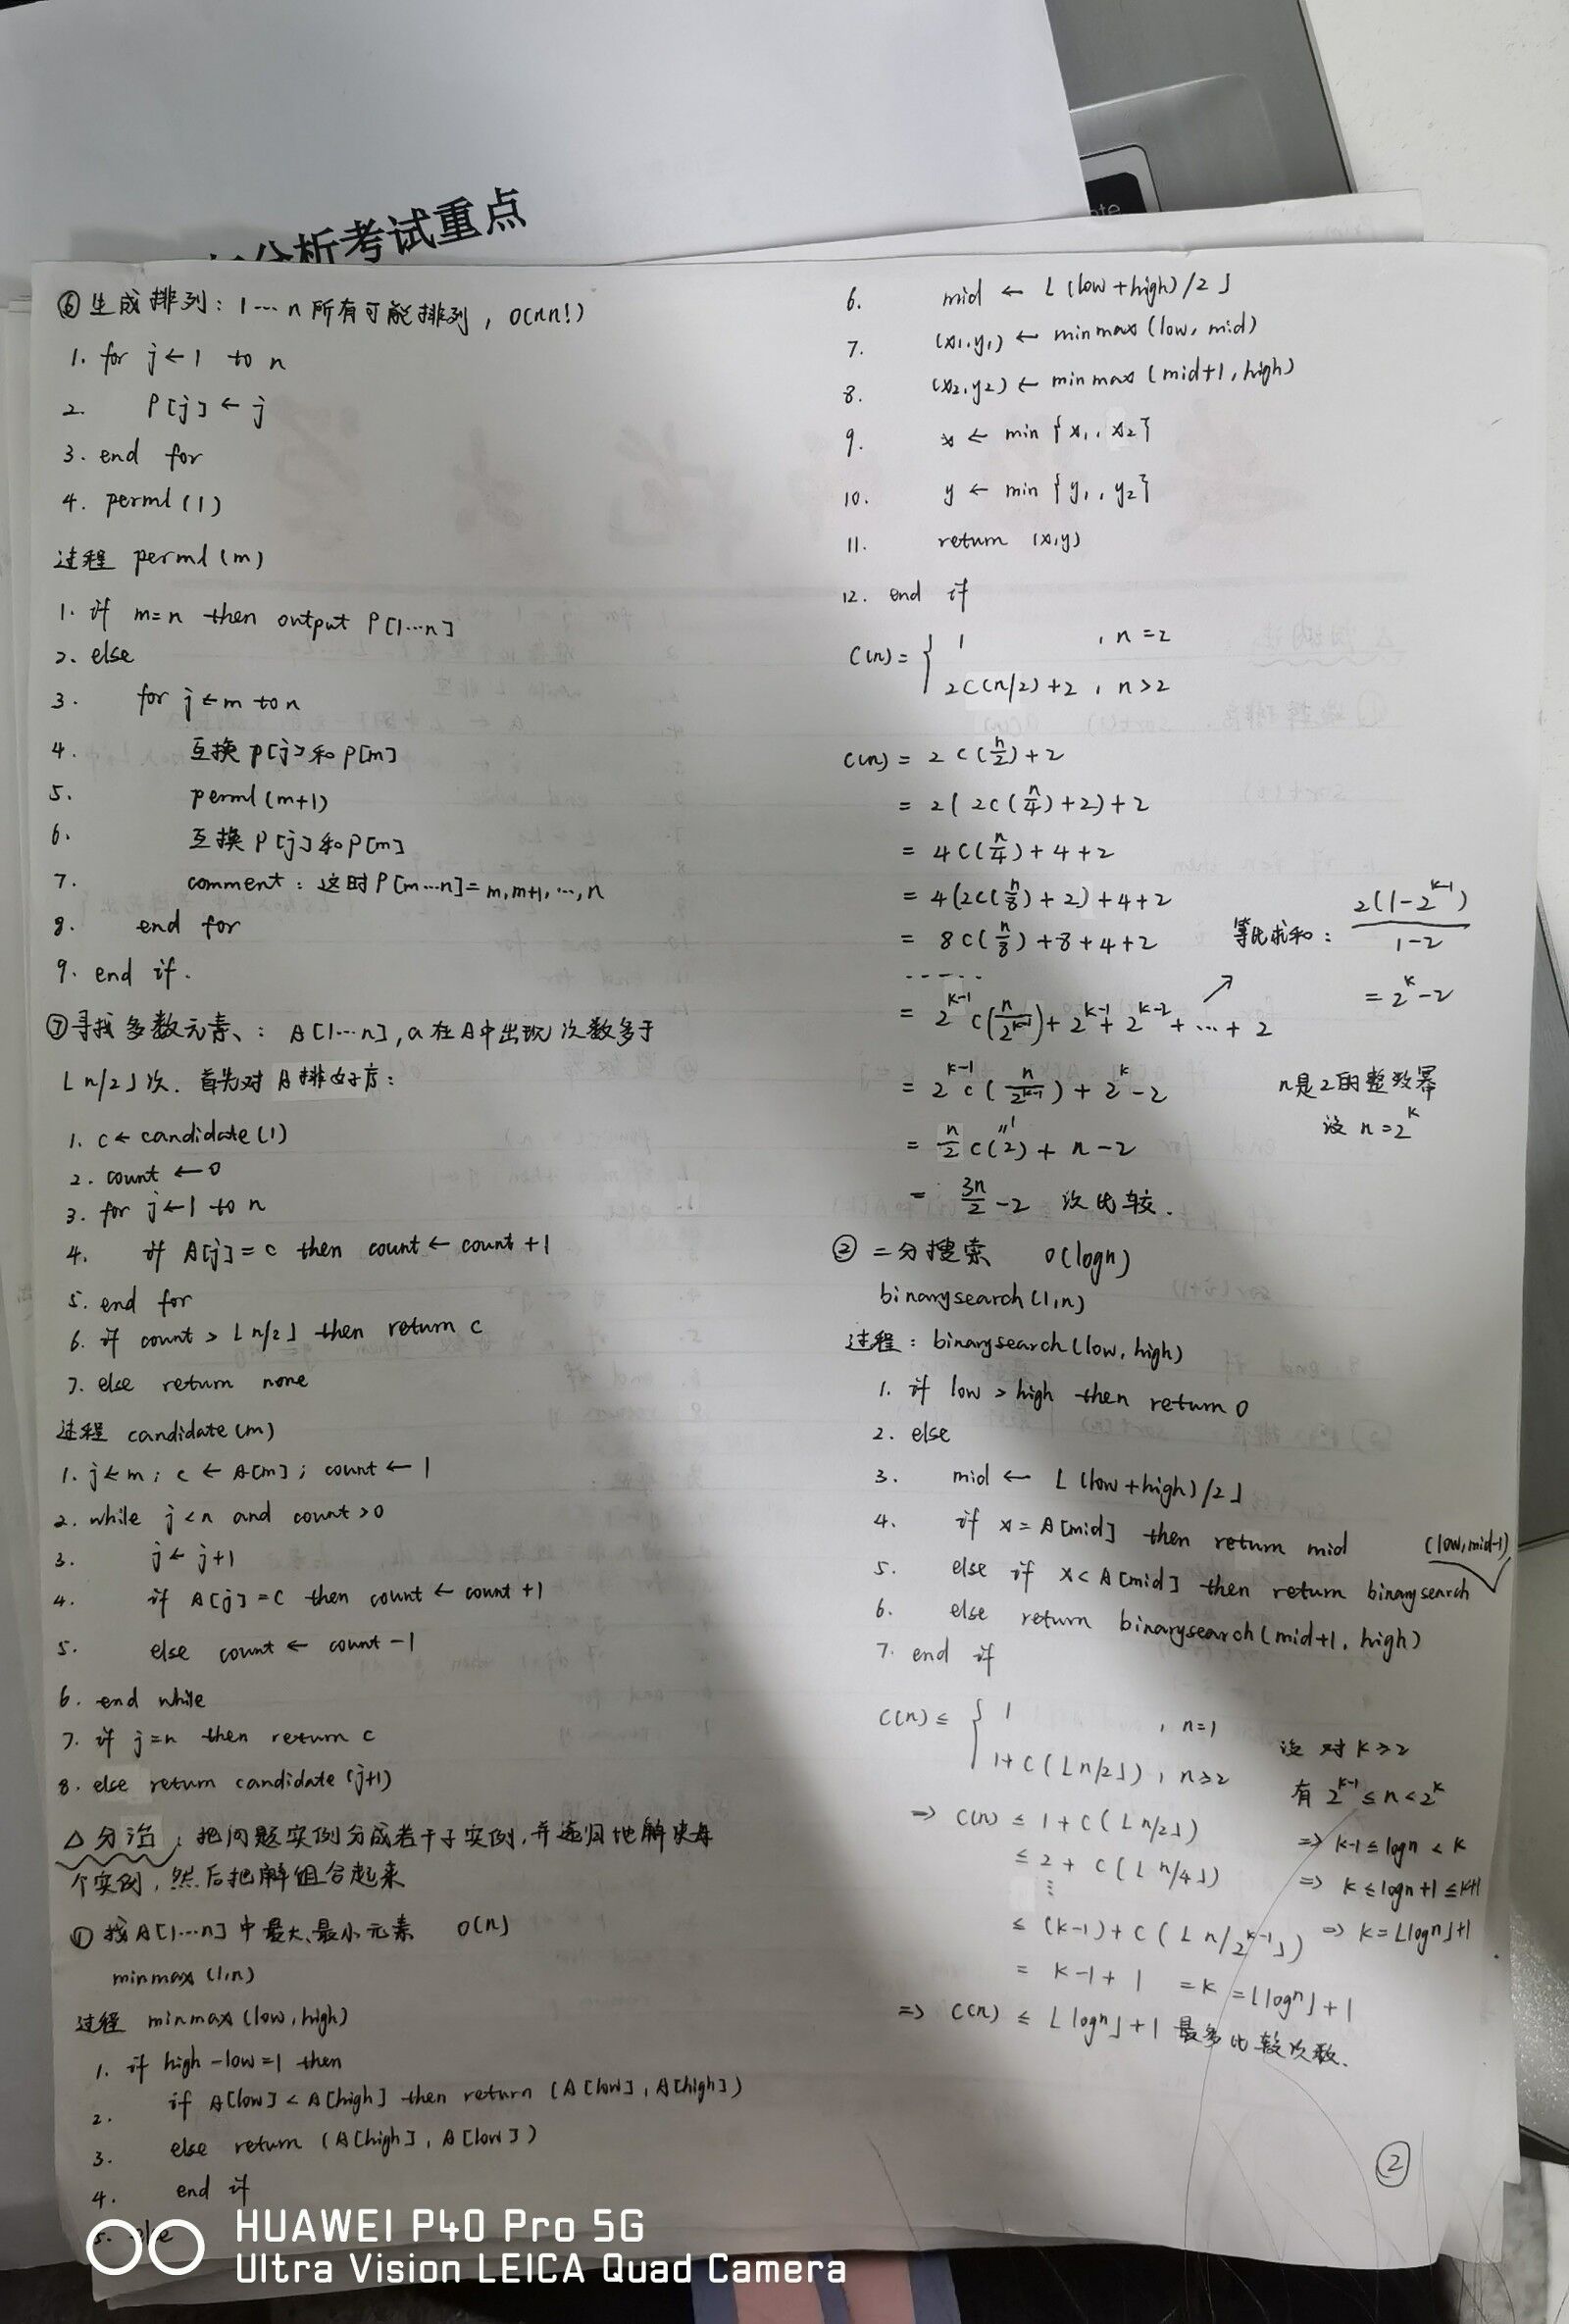 分析考试重点
⑥生成排列：1…n所有可能排列，O(nn!)
1. for j←1 to n
2. P[j]←j
3. end for
4. perm1(1)
过程 perm1(m)
1. if m=n then output P[1…n]
2. else
3. for j←m to n
4. 互换P[j]和P[m]
5. perm1(m+1)
6. 互换P[j]和P[m]
7. comment：这时P[m…n]=m,m+1,…,n
8. end for
9. end if.
⑦寻找多数元素、：A[1…n],a在A中出现次数多于
⌊n/2⌋次. 首先对A排好序：
1. c←candidate(1)
2. count←0
3. for j←1 to n
4. if A[j]=c then count←count+1
5. end for
6. if count>⌊n/2⌋ then return c
7. else return none
过程 candidate(m)
1. j←m; c←A[m]; count←1
2. while j<n and count>0
3. j←j+1
4. if A[j]=c then count←count+1
5. else count←count-1
6. end while
7. if j=n then return c
8. else return candidate(j+1)
△分治：把问题实例分成若干子实例,并递归地解决每
个实例，然后把解组合起来
①找A[1…n]中最大、最小元素 O(n)
minmax(1,n)
过程 minmax(low,high)
1. if high-low=1 then
2. if A[low]<A[high] then return (A[low],A[high])
3. else return (A[high],A[low])
4. end if
5. else
6. mid←⌊(low+high)/2⌋
7. (x1,y1)←minmax(low,mid)
8. (x2,y2)←minmax(mid+1,high)
9. x←min{x1,x2}
10. y←min{y1,y2}
11. return (x,y)
12. end if
C(n)={1 , n=2
2C(n/2)+2, n>2
C(n)=2C(n/2)+2
=2(2C(n/4)+2)+2
=4C(n/4)+4+2
=4(2C(n/8)+2)+4+2
=8C(n/8)+8+4+2
等比求和：2(1-2^{k-1})/(1-2)
=2^k-2
……
=2^{k-1}C(n/2^{k-1})+2^{k-1}+2^{k-2}+…+2
=2^{k-1}C(n/2^{k-1})+2^k-2
n是2的整数幂
设n=2^k
=n/2 C(2)+n-2
"1
=3n/2-2 次比较.
②二分搜索 O(logn)
binarysearch(1,n)
过程：binarysearch(low,high)
1. if low>high then return 0
2. else
3. mid←⌊(low+high)/2⌋
4. if x=A[mid] then return mid
5. else if x<A[mid] then return binarysearch (low,mid-1)
6. else return binarysearch(mid+1,high)
7. end if
C(n)≤{1 , n=1
1+C(⌊n/2⌋), n≥2
设对k≥2
有2^{k-1}≤n<2^k
⇒k-1≤logn<k
⇒k≤logn+1≤k+1
⇒k=⌊logn⌋+1
⇒C(n)≤1+C(⌊n/2⌋)
≤2+C(⌊n/4⌋)
⋮
≤(k-1)+C(⌊n/2^{k-1}⌋)
=k-1+1 =k =⌊logn⌋+1
⇒C(n)≤⌊logn⌋+1 最多比较次数.
②
HUAWEI P40 Pro 5G
Ultra Vision LEICA Quad Camera